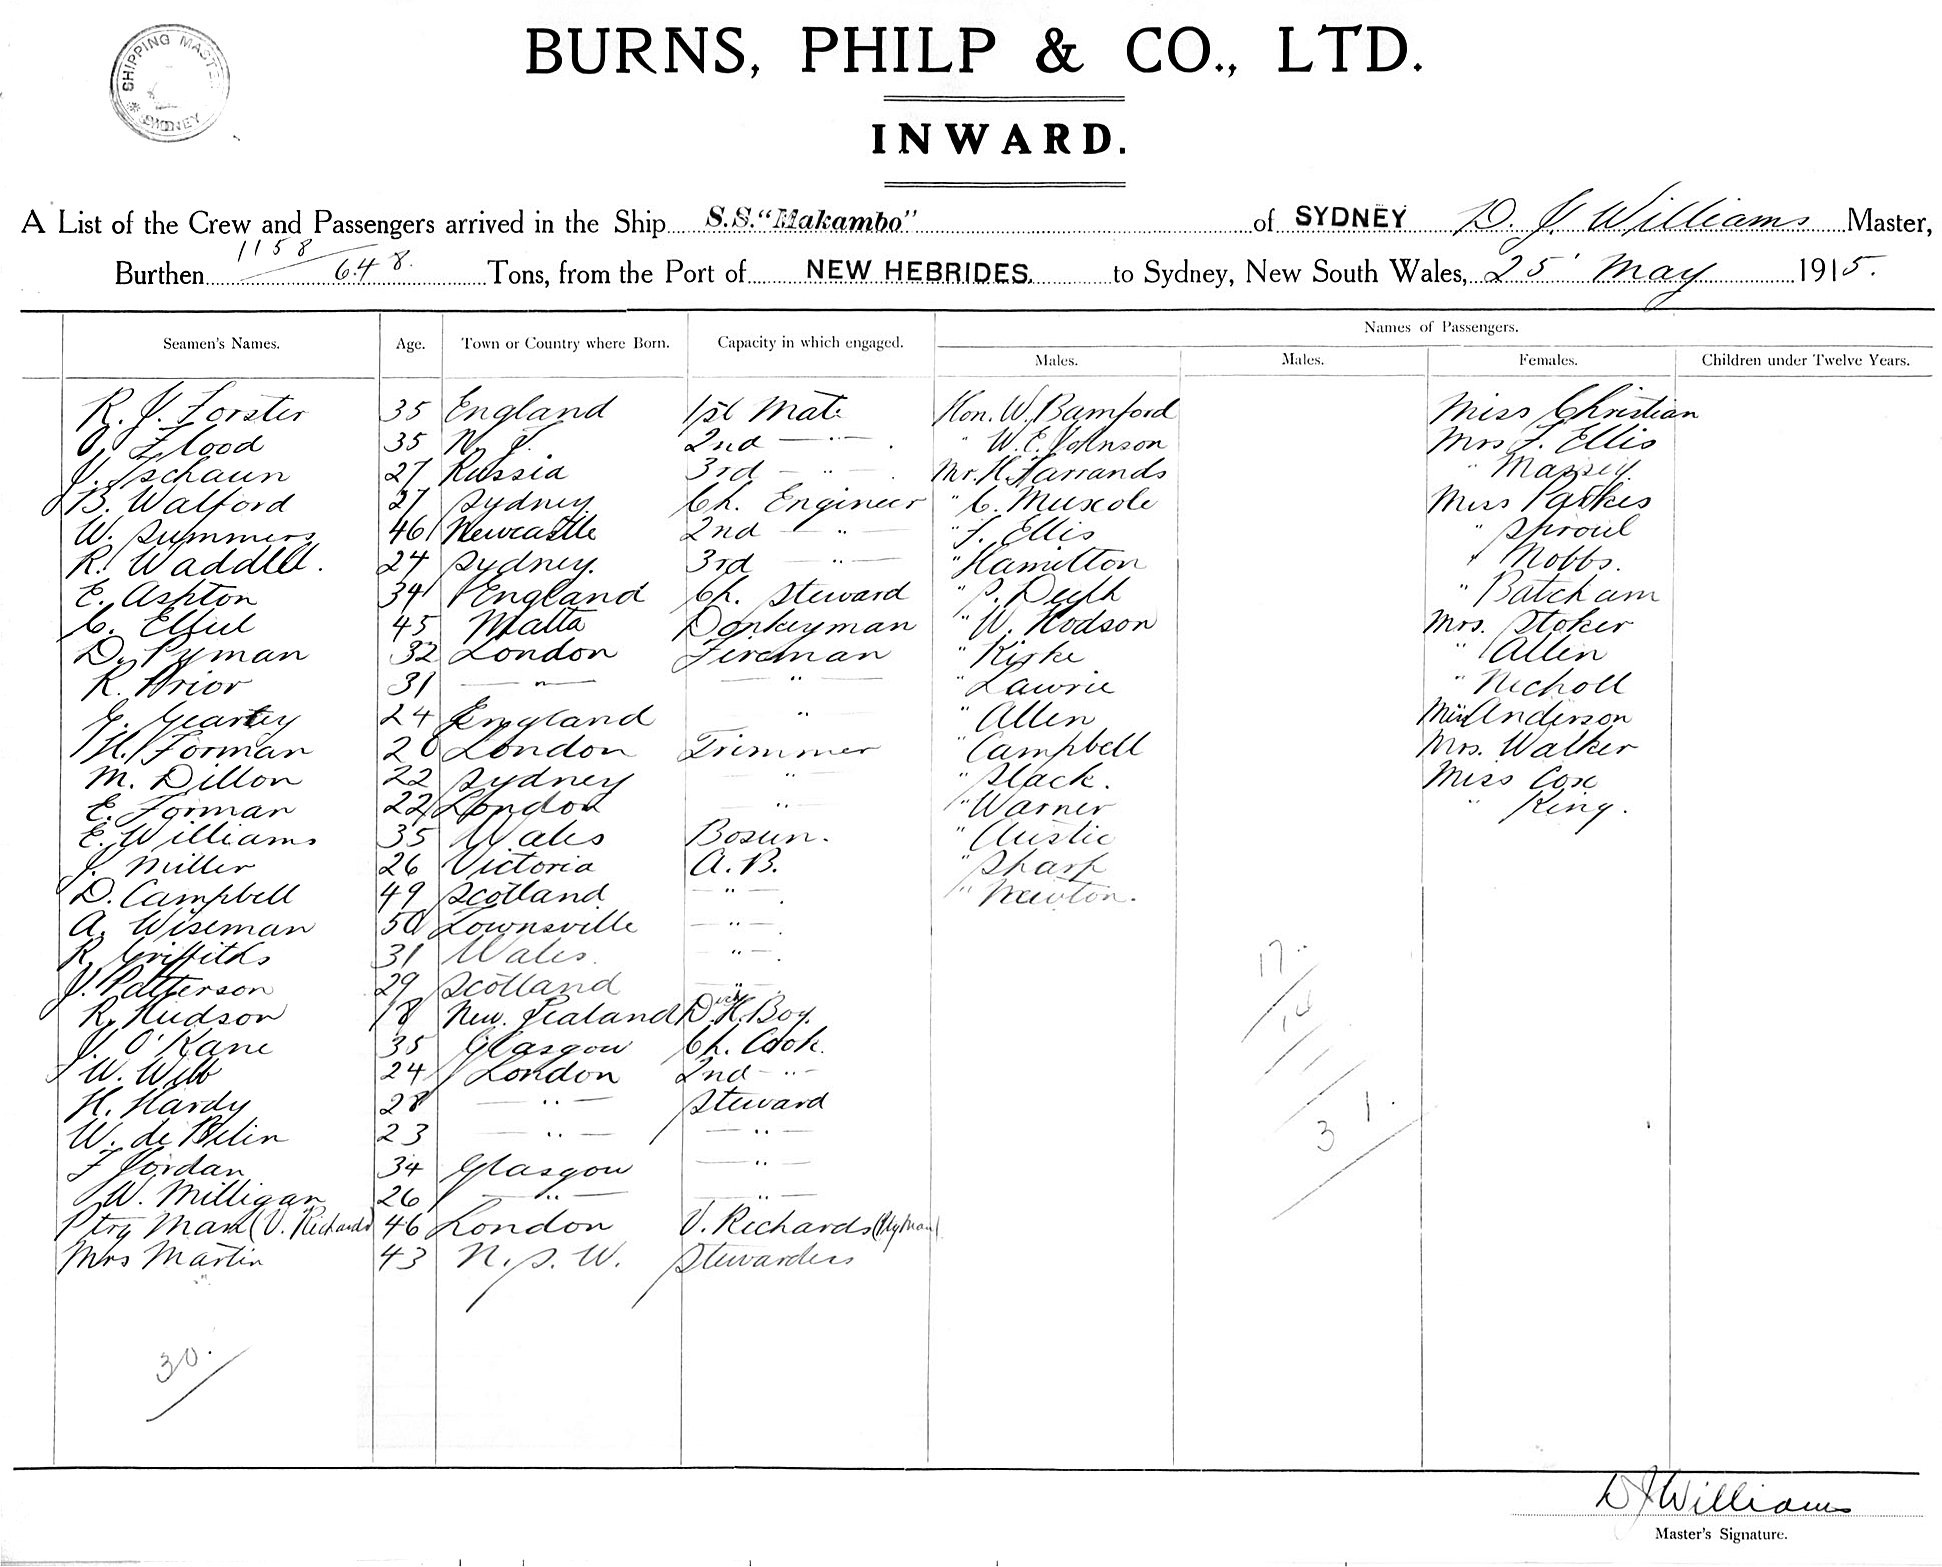 SHIPPING MASTER
SYDNEY
BURNS, PHILP & CO., LTD.
INWARD.
A List of the Crew and Passengers arrived in the Ship S.S. "Makambo" of SYDNEY D. J. Williams Master,
Burthen 1158 / 648. Tons, from the Port of NEW HEBRIDES. to Sydney, New South Wales, 25 May 1915.
Names of Passengers.
Seamen's Names. Age. Town or Country where Born. Capacity in which engaged. Males. Males. Females. Children under Twelve Years.
R. J. Forster 35 England 1st Mate Hon. W. Bamford Miss Christian
Flood 35 2nd — " — " W. E. Johnson Mrs F. Ellis
J. Tschaun 27 Russia 3rd — " — Mr. H. Farrands " Massey
B. Walford 27 Sydney Ch. Engineer " C. Muscole Miss Parkes
W. Summers 46 Newcastle 2nd — " — " F. Ellis " Sproul
R. Waddell. 24 Sydney. 3rd — " — " Hamilton " Nobbs.
E. Ashton 34 England Ch. Steward " Batcham
C. 45 Malta Donkeyman " W. Hodson Mrs. Stoker
D. Pyman 32 London Fireman " Kirke " Allen
R. Prior 31 — " — — " — " Lawrie " Nicholl
G. Geartey 24 England " " Allen Miss Anderson
H. Forman 20 London Trimmer " Campbell Mrs. Walker
M. Dillon 22 Sydney — " — " Slack. Miss Cox
E. Forman 22 London — " — " Warner " King.
E. Williams 35 Wales Bosun. " Austie
J. Miller 26 Victoria A.B. " Sharp
D. Campbell 49 Scotland — " — " Newton.
A. Wiseman 50 Townsville — " —
R. Griffiths 31 Wales. — " —
J. Patterson 29 Scotland — " —
R. Hudson 18 New Zealand Deck Boy.
J. O'Kane 35 Glasgow Ch. Cook.
W. Webb 24 London 2nd — " —
H. Hardy 28 — " — Steward
W. de Belin 23 — " — — " —
F Jordan 34 Glasgow — " —
W. Milligan 26 — " — — " —
Ptry Man (V. Richards) 46 London V. Richards (Pty Man)
Mrs Martin 43 N. S. W. Stewardess
17
14
31.
30.
D J Williams
Master's Signature.